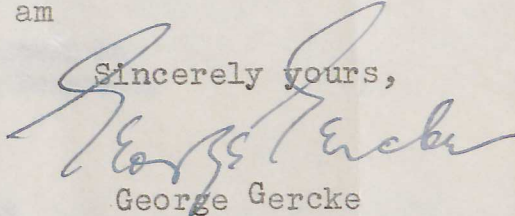 am
Sincerely yours,
George Gercke
George Gercke